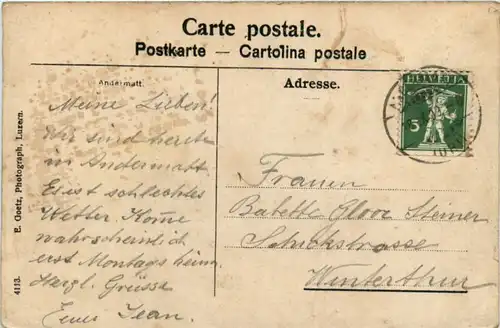 Carte postale.
Postkarte — Cartolina postale
Andermatt.
Adresse.
HELVETIA
5
Meine Lieben!
Wir sind heute
in Andermatt.
Es ist schlechtes
Wetter. Kome
wahrscheinlich
erst Montags heim.
Herzl. Grüsse
Euer Jean.
Frauen
Babette Steiner
Schickstrasse
Winterthur
E. Goetz, Photograph, Luzern.
4113.